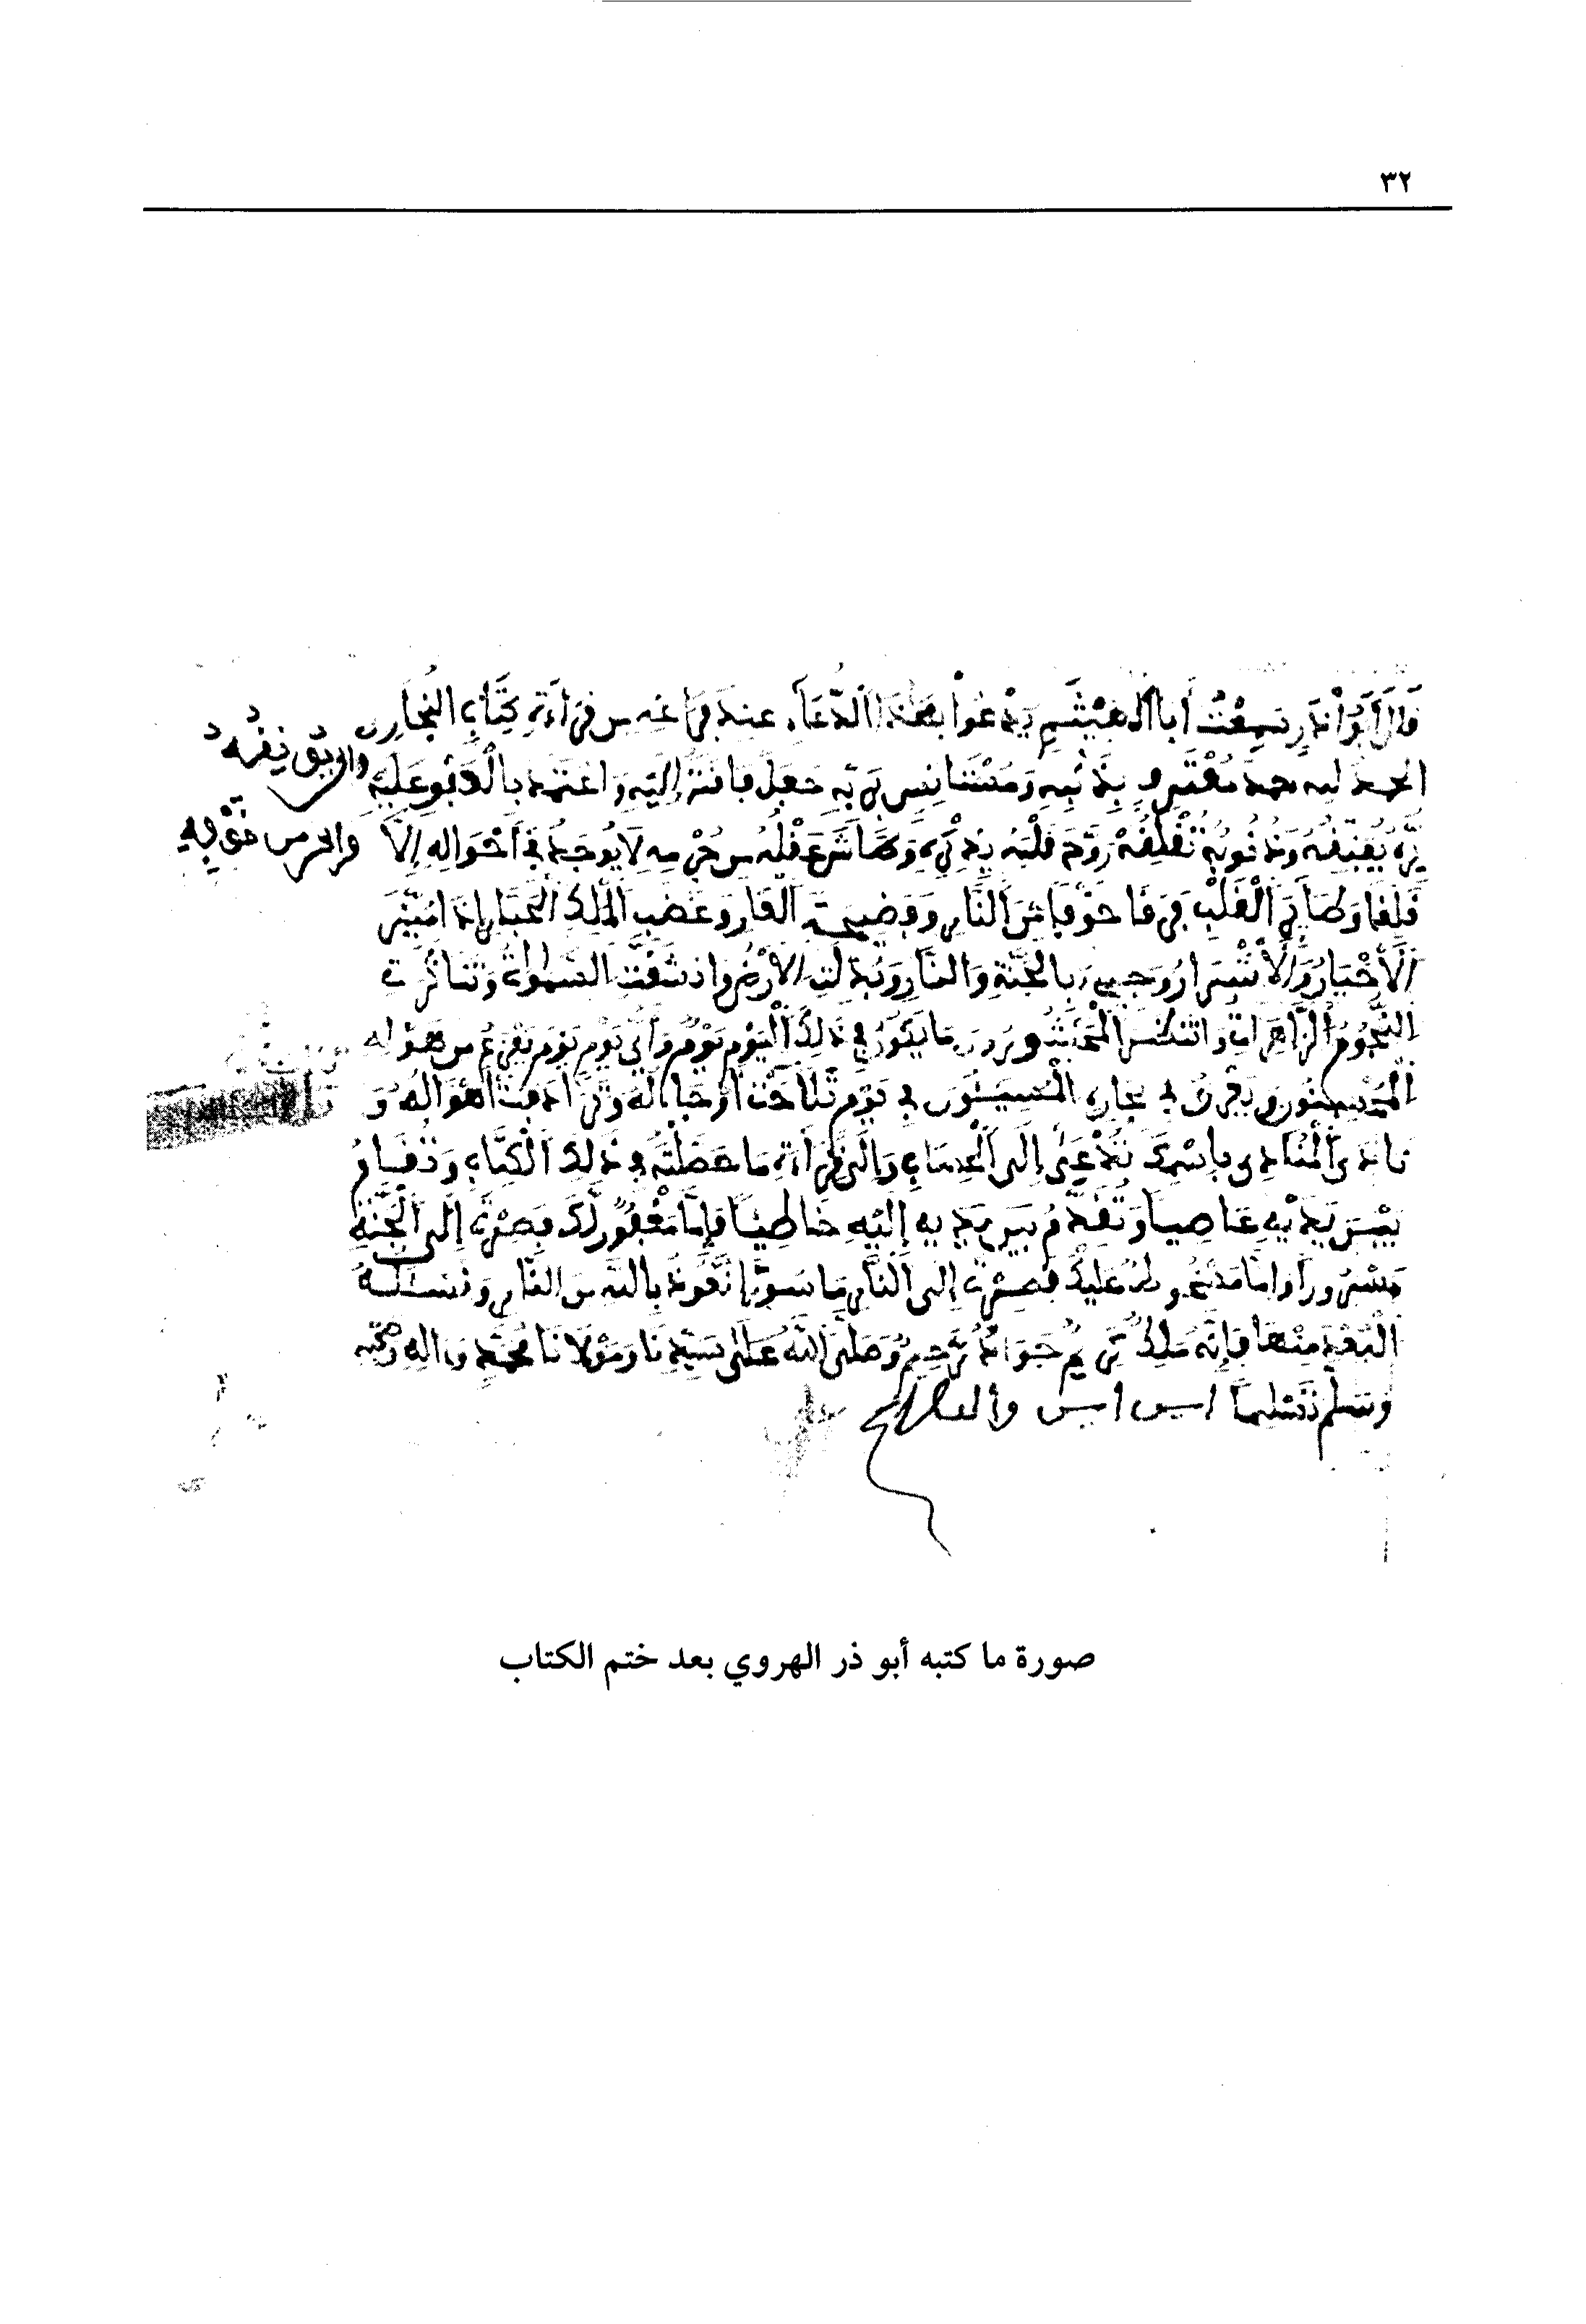 ٣٢
قَالَ أَبُو ذَرٍّ سَمِعْتُ أَبَا الْهَيْثَمِ يَدْعُوا بِهَذَا الدُّعَاءِ عِنْدَ فَرَاغِهِ مِن قِرَاءَةِ كِتَابِ الْبُخَارِي
الحمد لله حمد مُعْتَرِفٍ بِذَنْبِهِ وَمُسْتَانِسٍ بِرَبِّهِ فَجَعَلَ فَاقَتَهُ إِلَيْهِ وَاعْتَمَدَ بِالْعَفْوِ عَلَيْهِ
وَذُنُوبُهُ تُقْلِقُهُ رَوَّحَ قَلْبَهُ بِذِكْرِهِ عَقْلُهُ مِن جُرْمِهِ لَا يُوجَدُ فِي أَحْوَالِهِ إِلَّا
قَلِقًا الْقَلْبِ فَرِقًا خَوْفًا مِنَ النَّارِ وَفَضِيحَةِ الْعَارِ وَغَضَبِ الْمَلِكِ الْجَبَّارِ إِذَا مُيِّزَ
الْأَخْيَارُ وَالْأَشْرَارُ وَجِيءَ بِالْجَنَّةِ وَالنَّارِ وَبُدِّلَتِ الْأَرْضُ وَانشَقَّتِ السَّمَوَاتُ وَتَنَاثَرَتِ
النُّجُومُ الزَّاهِرَاتُ مَا يَكُونُ فِي ذَلِكَ الْيَوْمِ يَوْمٌ وَأَيُّ يَوْمٍ يَوْمٌ يَفْزَعُ مِن هَوْلِهِ
الْمُحْسِنُونَ وَيَغْرَقُ فِي بِحَارِهِ الْمُسِيئُونَ فِي يَوْمٍ أَهْوَالُهُ وَ
نَادَى الْمُنَادِي بِاسْمِكَ تُدْعَى إِلَى الْحِسَابِ وَإِلَى قِرَاءَةِ مَا حَصَّلْتَهُ فِي ذَلِكَ الْكِتَابِ وَتُقَامُ
بَيْنَ يَدَيْهِ عَاصِيًا وَتُقَدَّمُ بَيْنَ يَدَيْهِ إِلَيْهِ خَاطِئًا فَإِمَّا مَغْفُورٌ لَكَ فَصِرْتَ إِلَى الْجَنَّةِ
مَسْرُورًا وَإِمَّا عَلَيْكَ فَصِرْتَ إِلَى النَّارِ نَعُوذُ بِاللَّهِ مِنَ النَّارِ وَنَسْأَلُهُ
الْبُعْدَ مِنْهَا فَإِنَّهُ مَلِكٌ كَرِيمٌ جَوَادٌ رَحِيمٌ وَصَلَّى اللَّهُ عَلَى سَيِّدِنَا وَمَوْلَانَا مُحَمَّدٍ وَآلِهِ وَصَحْبِهِ
وَسَلَّمَ تَسْلِيمًا
صورة ما كتبه أبو ذر الهروي بعد ختم الكتاب